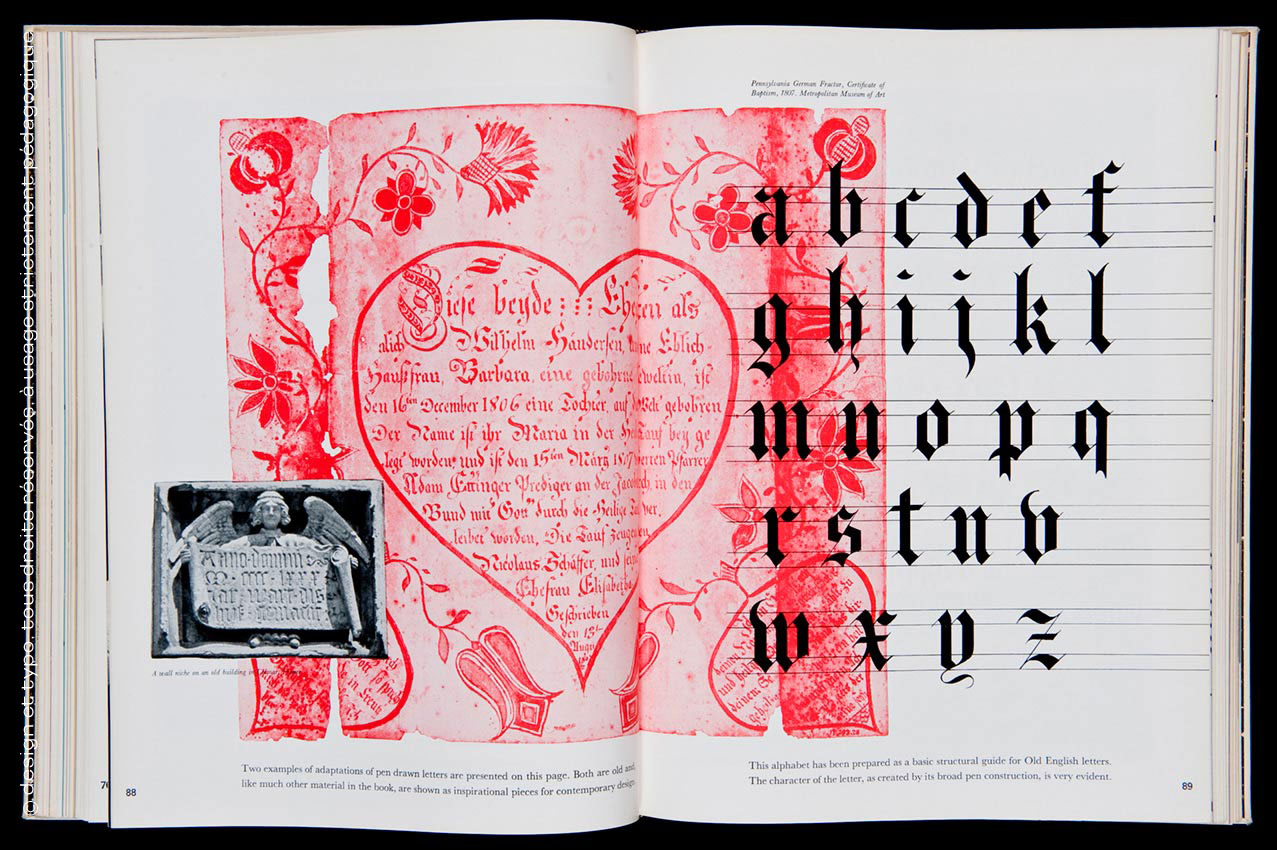 © design et typo, tous droits réservés, à usage strictement pédagogique
Pennsylvania German Fractur, Certificate of
Baptism, 1807. Metropolitan Museum of Art
iese beyde : : : Eheren als
alich Wilhelm Händersen, ne Ehlich-
Haußfrau, Barbara, eine gebohrne ist
den 16ten December 1806 eine Tochter, auf Welt gebohren
Der Name ist ihr Maria in der Tauf bey ge
legt worden und ist den 15ten März Pfarrer
Adam Ettinger Prediger an der in den
Bund mit Gott durch die Heilige ver,
leibet worden, Die Tauf zeugen
Nicolaus Schäffer, und
Ehefrau Elisabetha
Geschrieben
den 15
Augu
Anno domini
m cccc lxxx
iar wart dis
a b c d e f
g h i j k l
m n o p q
r s t u v
w x y z
A wall niche on an old building in
Two examples of adaptations of pen drawn letters are presented on this page. Both are old and,
like much other material in the book, are shown as inspirational pieces for contemporary design.
This alphabet has been prepared as a basic structural guide for Old English letters.
The character of the letter, as created by its broad pen construction, is very evident.
88
89